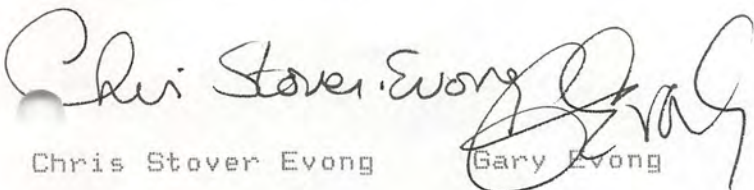 Chris Stover-Evong GEvong
Chris Stover Evong Gary Evong